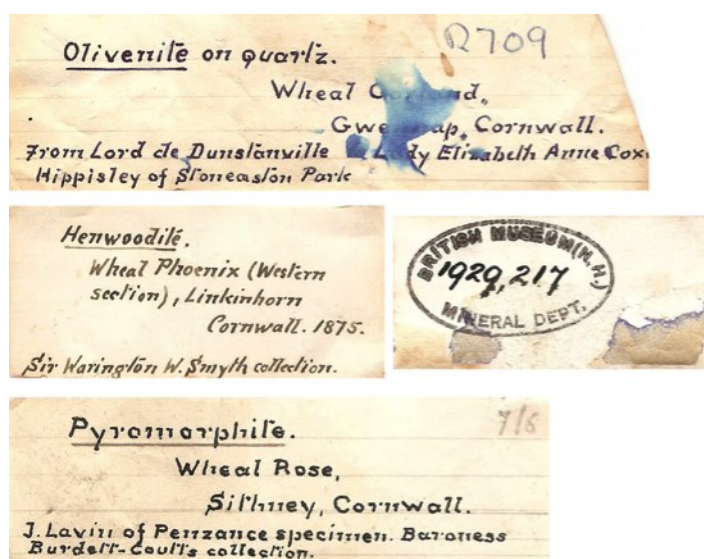 R709
Olivenite on quartz.
Wheal Gorland,
Gwennap, Cornwall.
From Lord de Dunstanville Lady Elizabeth Anne Cox
Hippisley of Stoneaston Park
Henwoodite.
Wheal Phoenix (Western
section), Linkinhorn
Cornwall. 1875.
Sir Warington W. Smyth collection.
BRITISH MUSEUM (N.H.)
1929,217
MINERAL DEPT.
7/6
Pyromorphite.
Wheal Rose,
Sithney, Cornwall.
J. Lavin of Penzance specimen. Baroness
Burdett-Coutts collection.